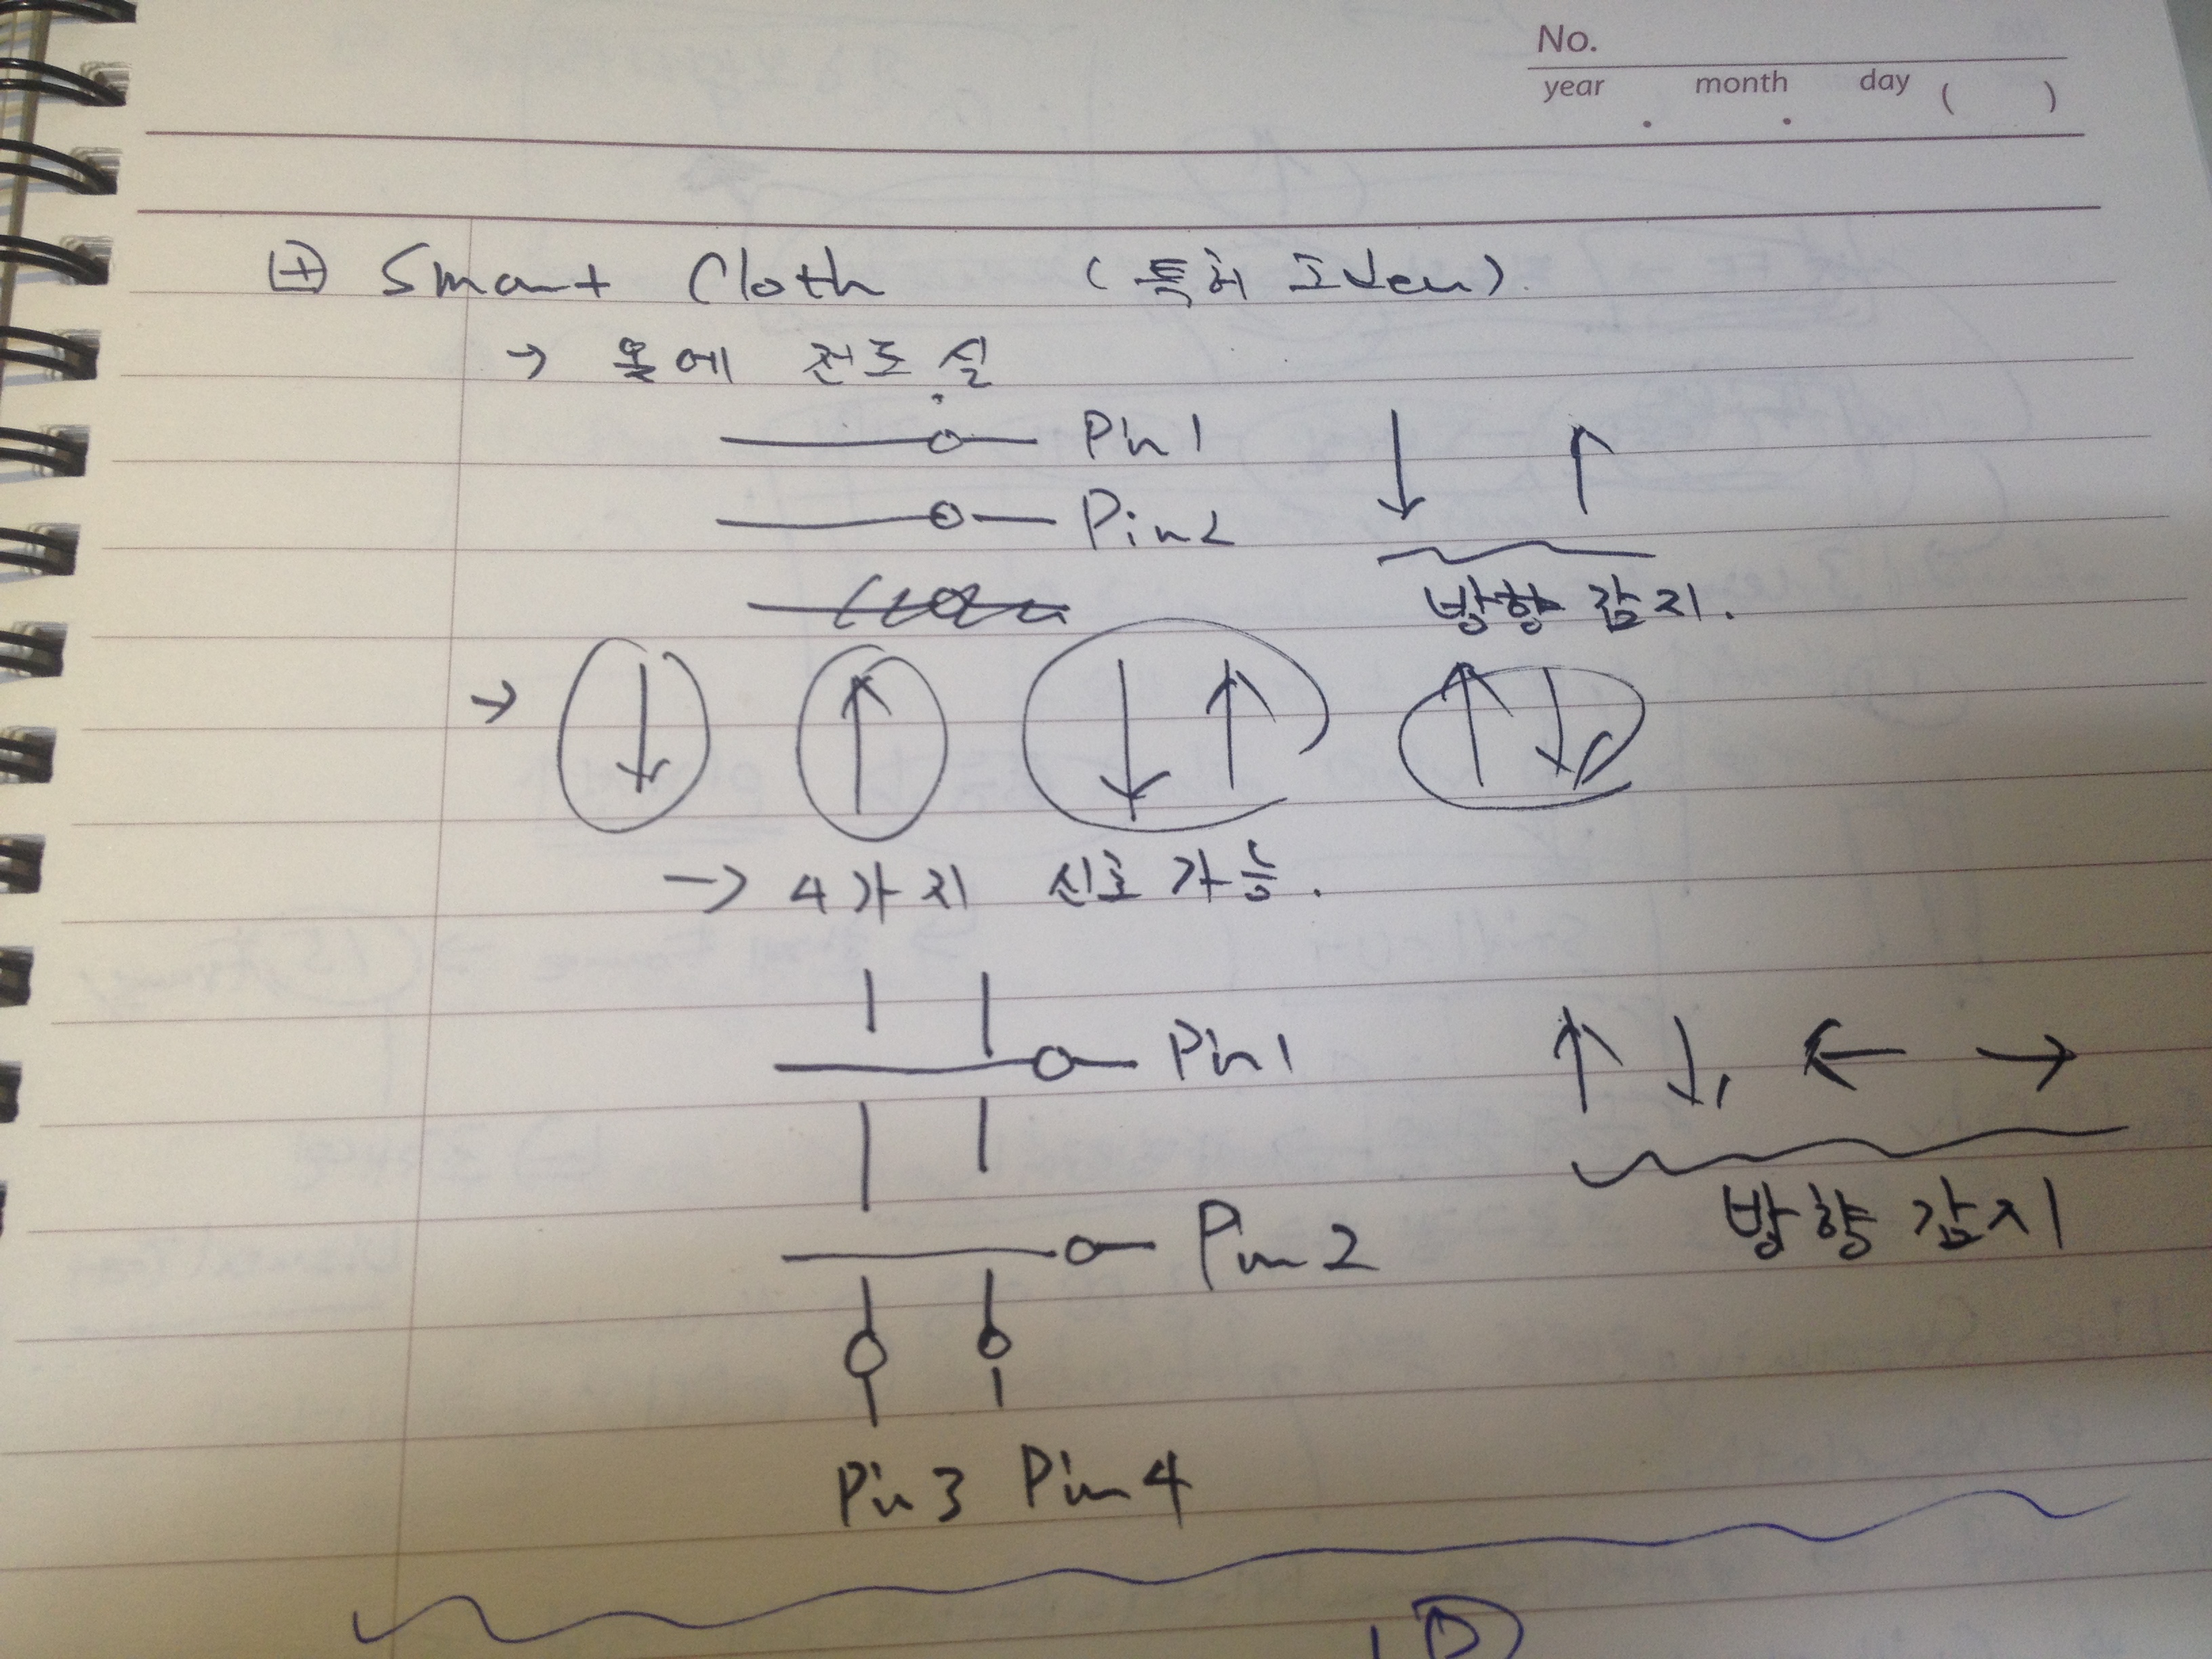 No.
year . month . day ( )
④ Smart Cloth (특허 고Jen)
→ 옷에 전도실
Pin1
Pin2
방향 감지.
→
→ 4가지 신호 가능.
Pin1
Pin2
방향 감지
Pin3 Pin4